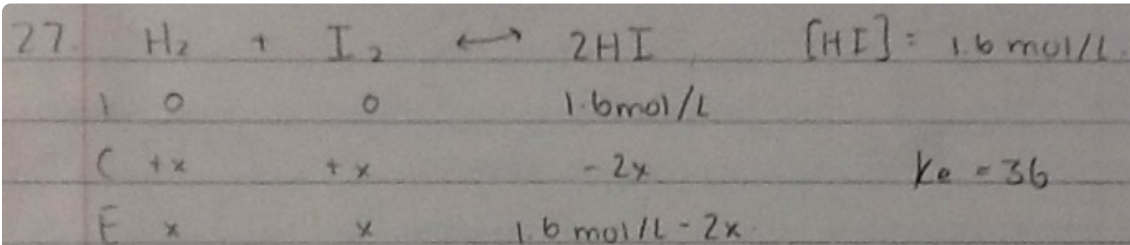 27. H₂ + I₂ ⟷ 2HI [HI] = 1.6 mol/L
I 0 0 1.6mol/L
C +x +x -2x Ke = 36
E x x 1.6 mol/L - 2x